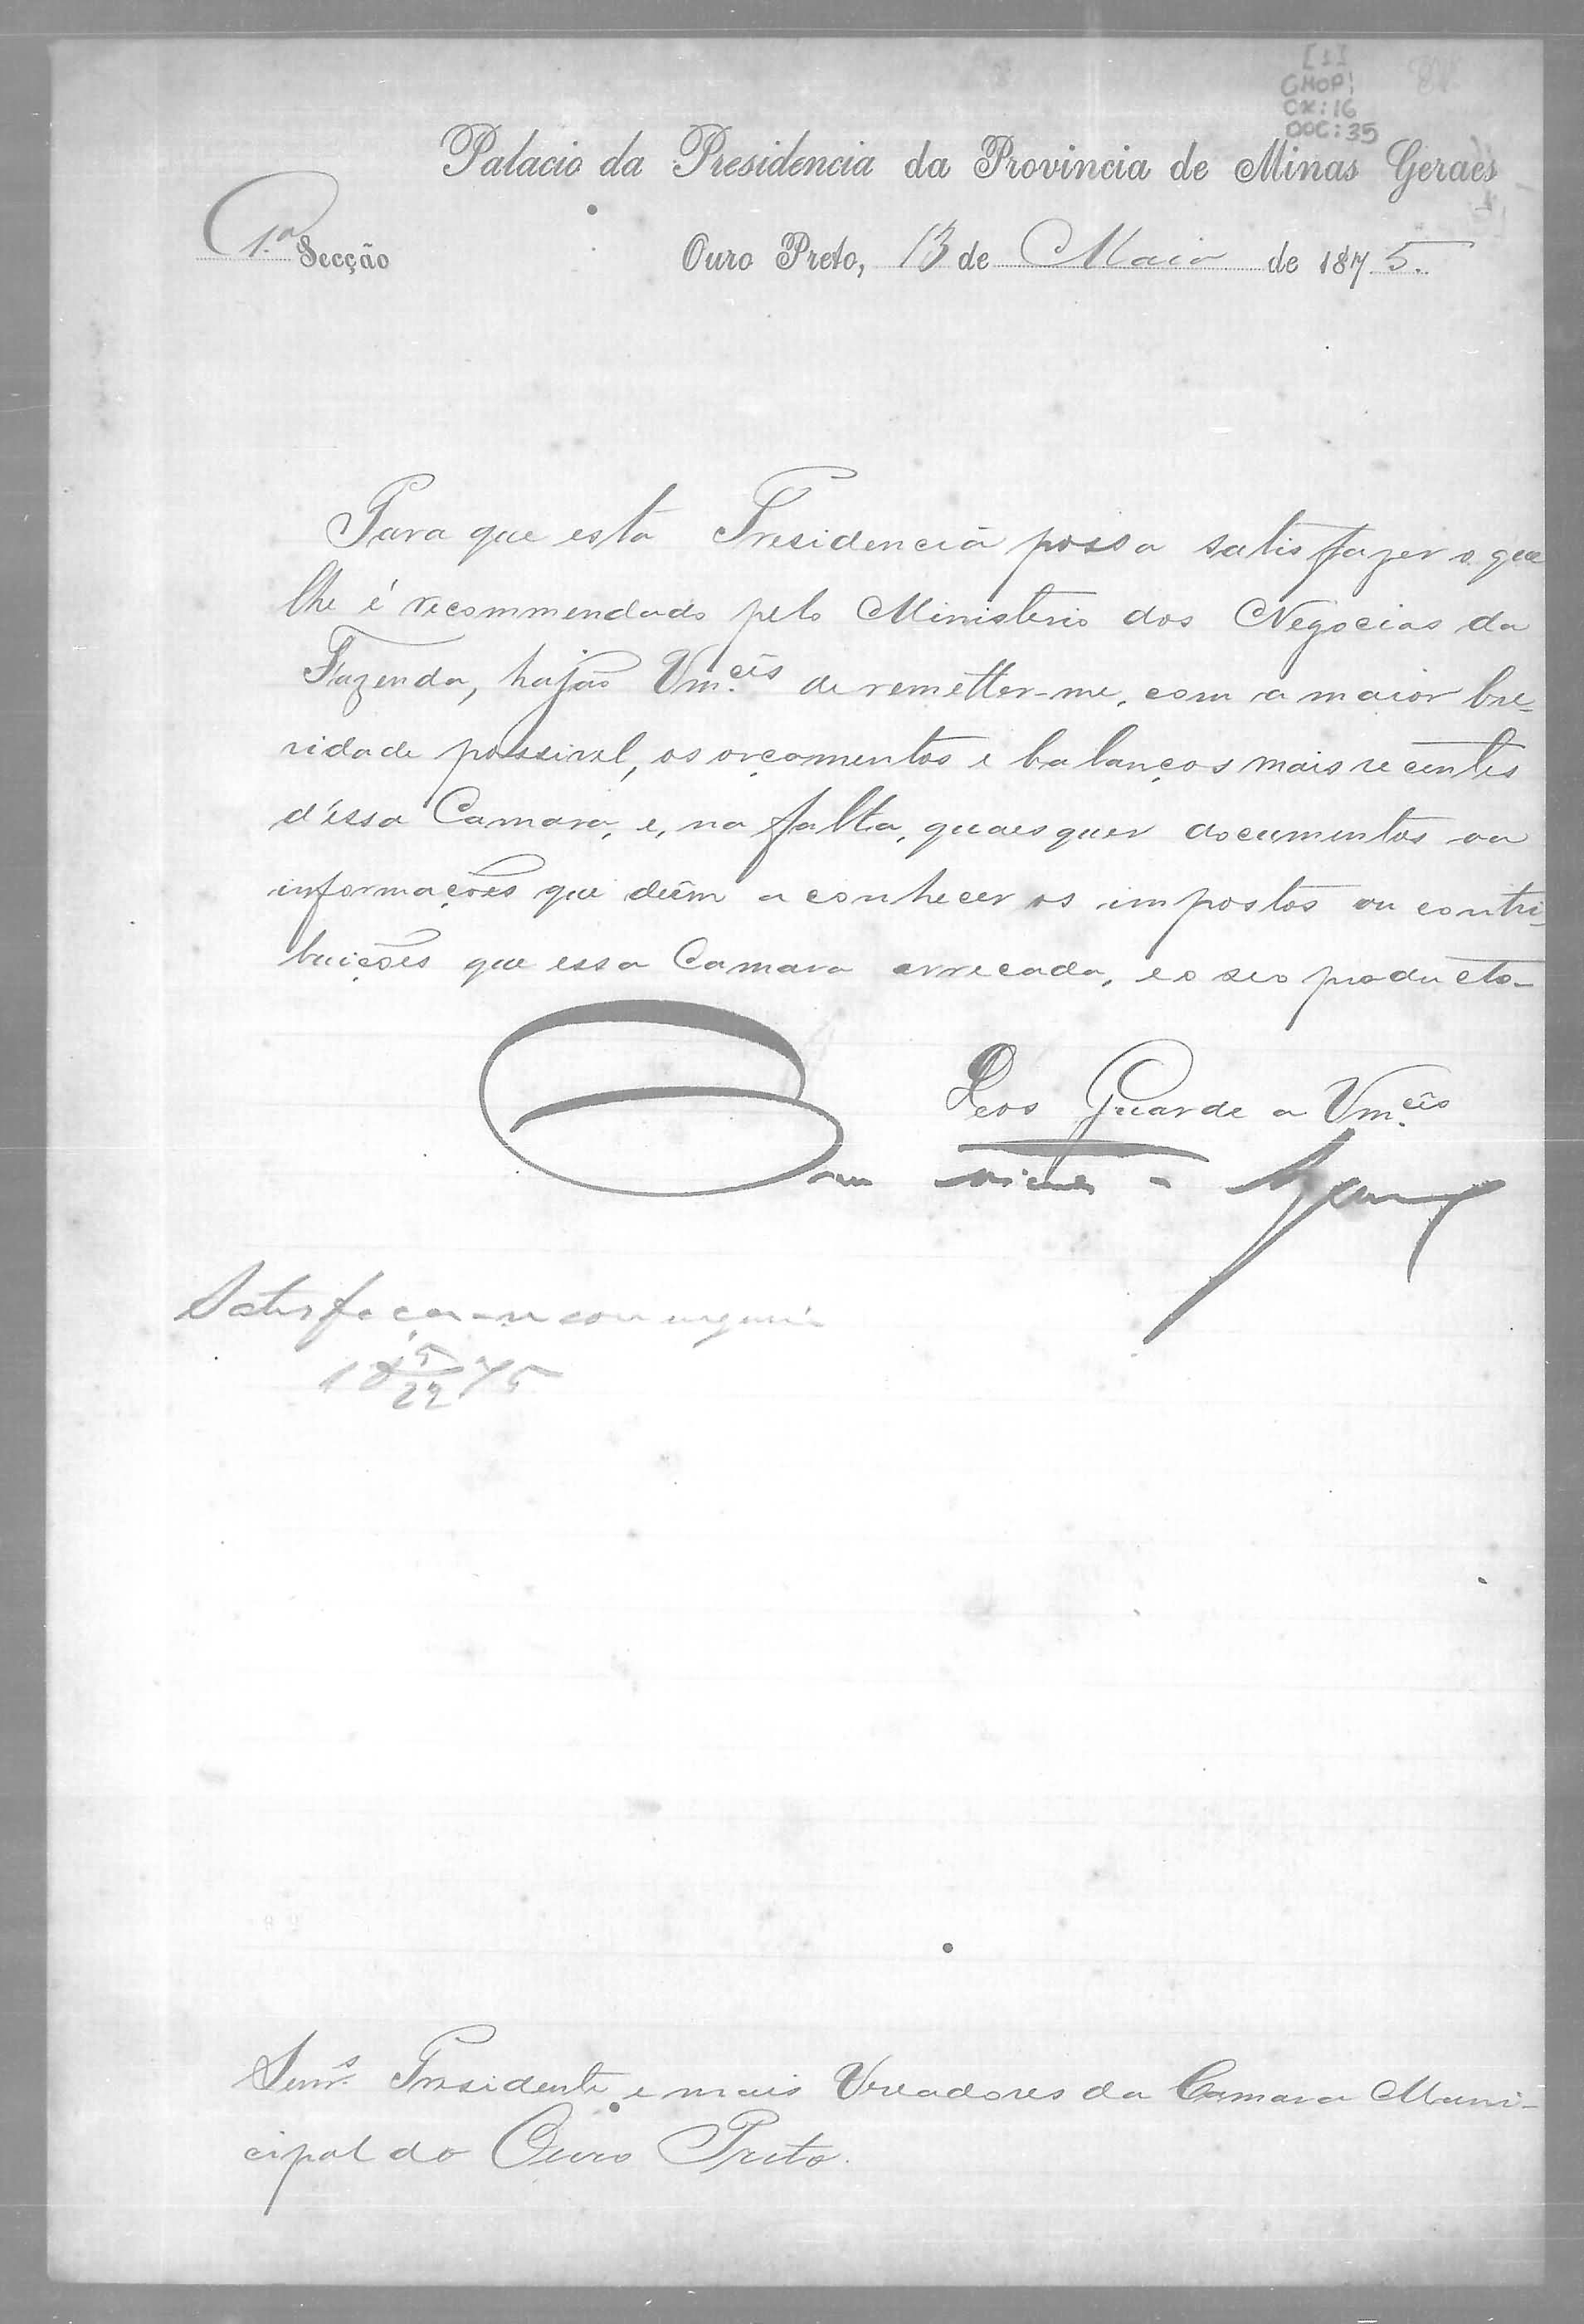 [1]
CMOP!
CX:16
DOC:35
Palacio da Presidencia da Provincia de Minas Geraes
1.ª Secção
Ouro Preto, 13 de Maio de 1875.
Para que esta Presidencia possa satisfazer o que
lhe é recommendado pelo Ministerio dos Negocios da
Fazenda, hajão Vm.cês de remetter-me, com a maior bre-
vidade possivel, os orçamentos e balanços mais recentes
d'essa Camara, e, na falta, quaesquer documentos ou
informações que dêem a conhecer os impostos ou contri-
buições que essa Camara arrecada, e o seo producto-
Deos Guarde a Vm.cês
Satisfaça-se com urgencia
18 5/22 75
Senr.s Presidente e mais Vereadores da Camara Muni-
cipal do Ouro Preto.